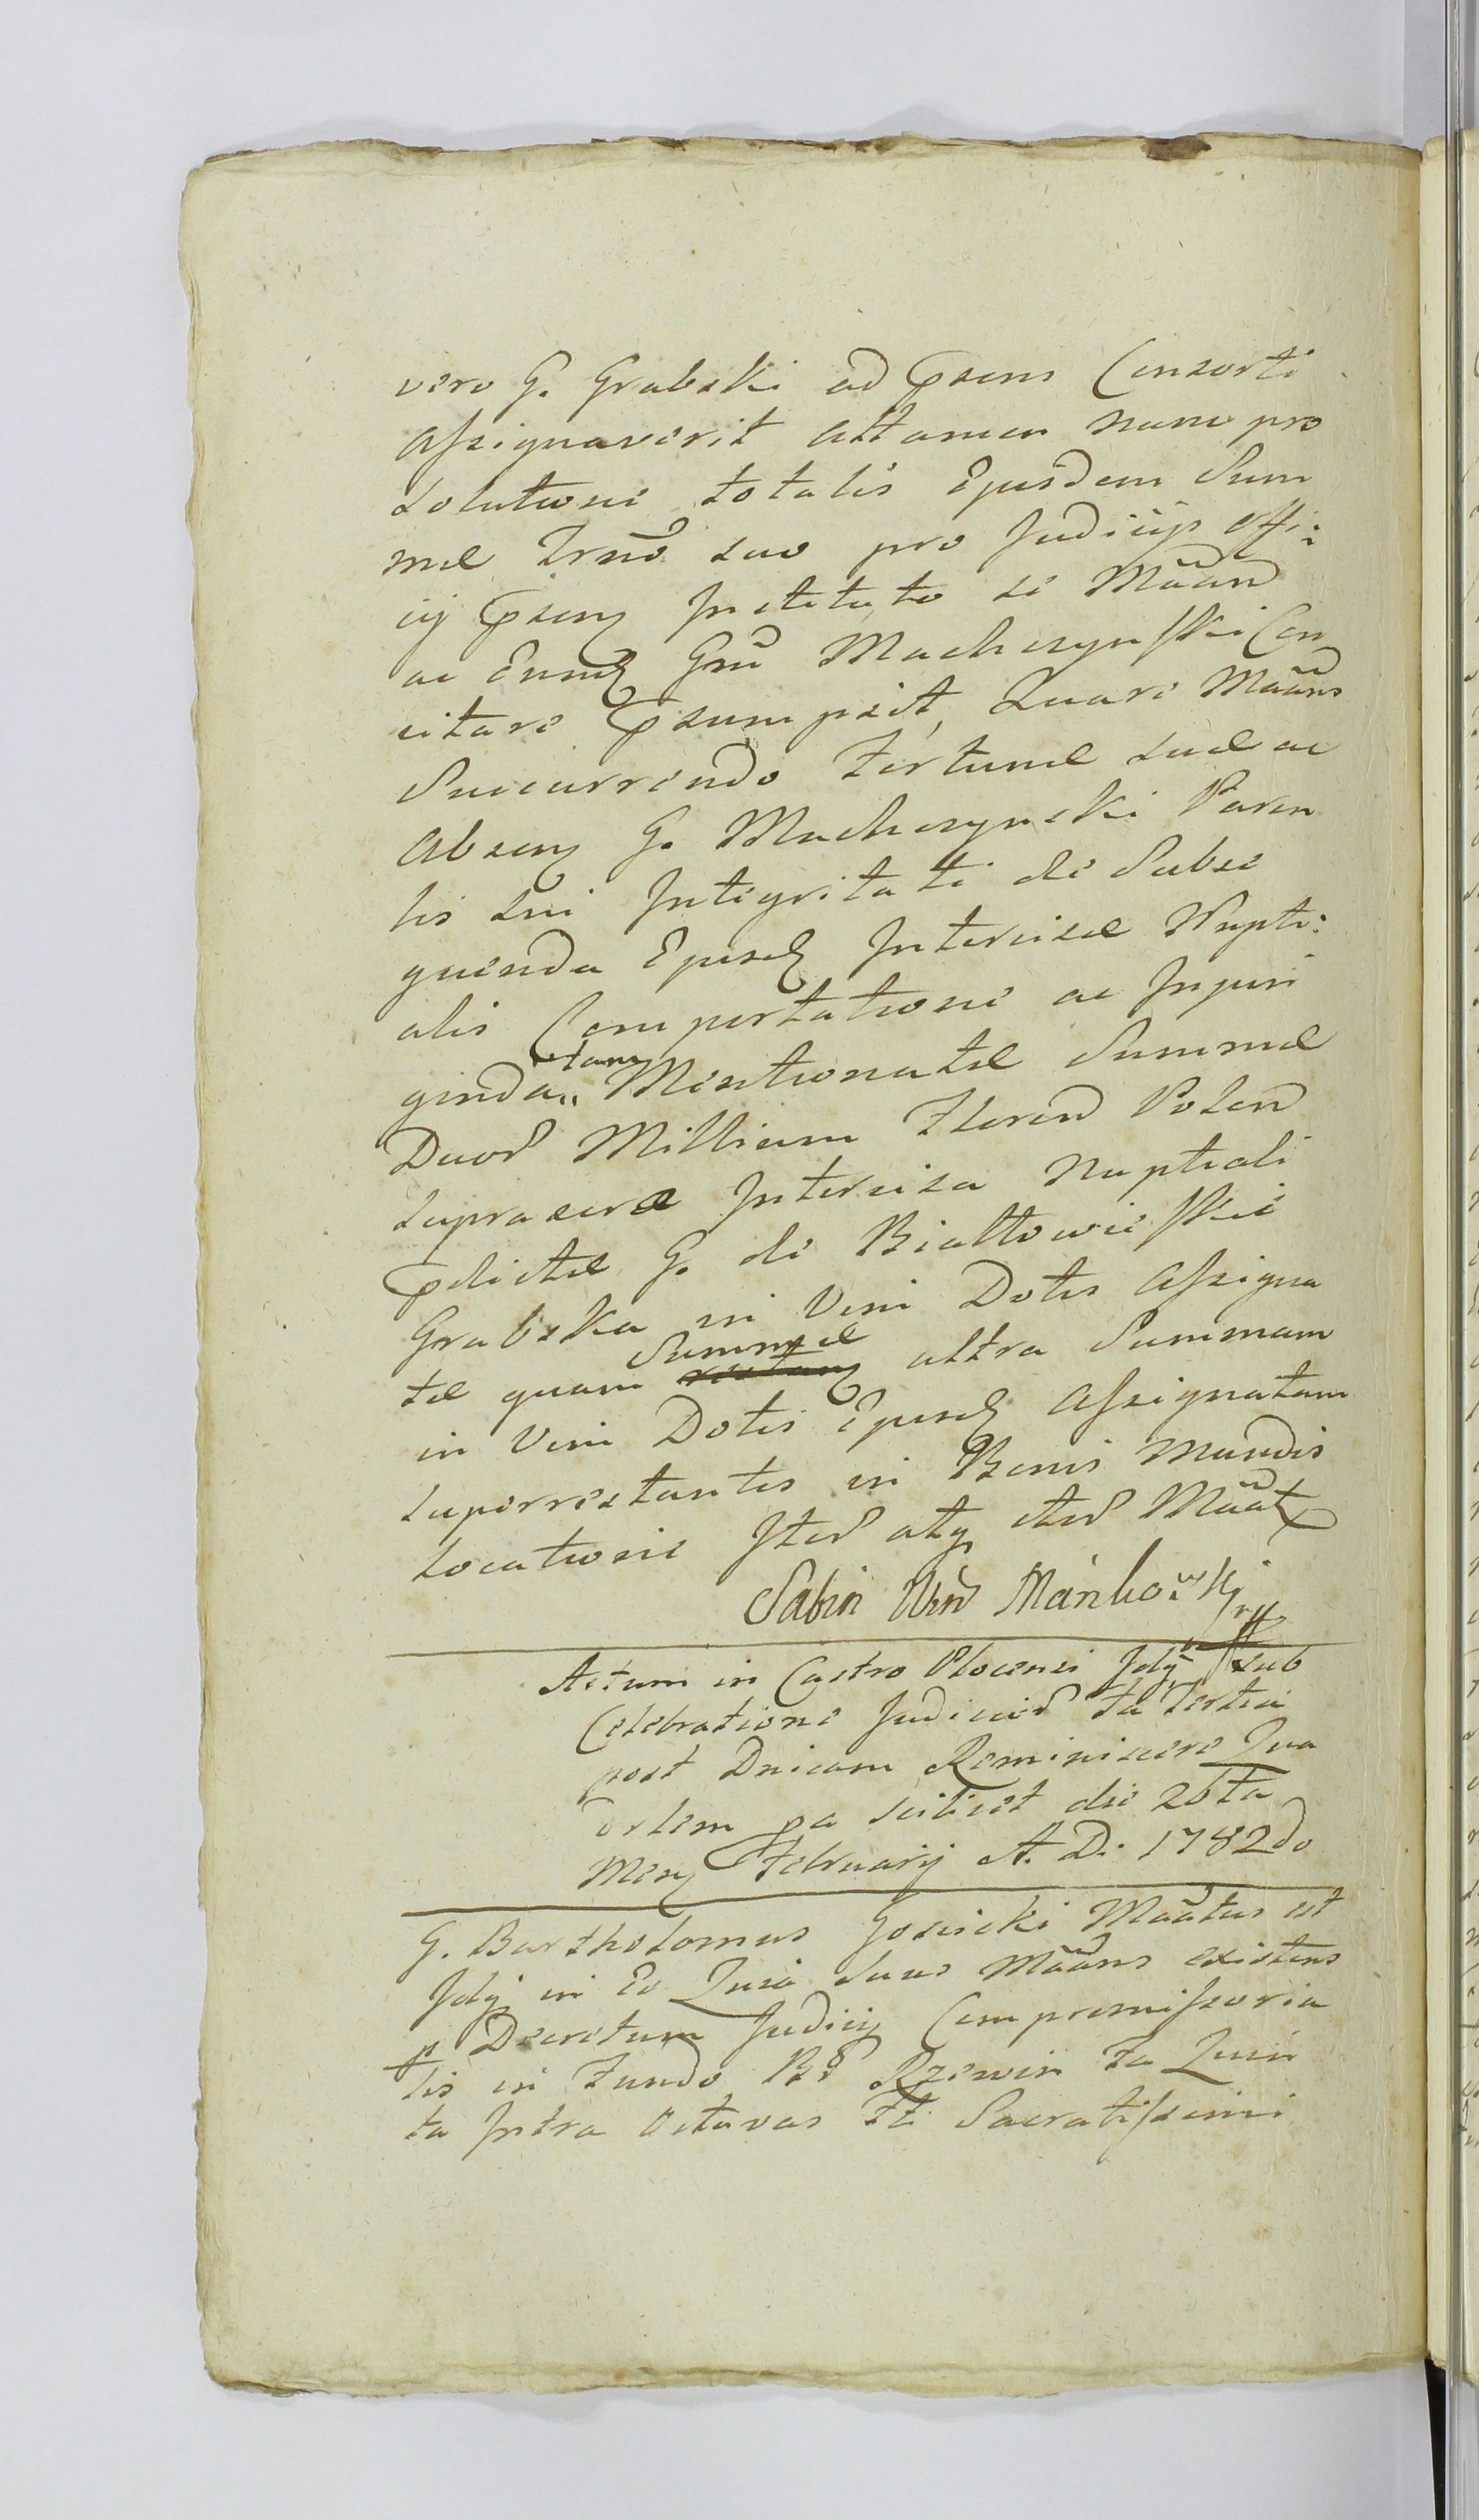 vero G. Grabski ad psens Consorti
assignaverit attamen nunc pro
solutione totalis Ejusdem Sum
mæ Trno suo pro Judicijs Offi:
cij psenz Institu to se Maand
ac Eundz Gnu Machczynsski Con
citare psumpsit, Quare Maans
Succurrendo Fortunæ suæ ac
Absenz G. Machczynski Paren
tis sui Integritati de Subse
quenda Ejusdz Intercisæ Nupti:
alis Comportatione ac Injun
genda,, tam Mentionatæ Summæ
Duor Millium Floren Polon
suprascræ Intercisa Nuptiali
pdictæ G. de Białłowiesskie
Grabska in Vim Dotis Assigna
tæ quam Summæ ultra Summam
in Vim Dotis Ejusdz Assignatam
superrestantis in Bonis Mundis
Locatione Iter atq iter Maatz
Sabin Win Mańkowski
Actum in Castro Plocensi Idq sub
Celebratione Judicior fa Tertia
post Dnicam Reminiscere Qua
drlem pa scilicet die 26ta
Menz February A. D. 1782do
G. Bartholomus Gosicki Maatus est
Idq in Eo Quia Suus Maans existens
p Decretum Judicij Compromissoria
lis in Fundo Br Rzewin fa Quin
ta Intra Octavas fti Sacratissimi